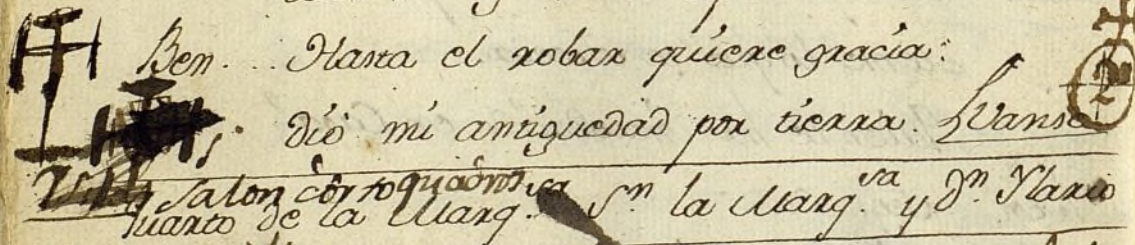 Ben... Hasta el robar quiere gracia:
dió mi antiguedad por tierra. Vanse
2
salon corto quadros
quarto de la Marq.sa Sn. la Marq.sa y Dn. Ylario